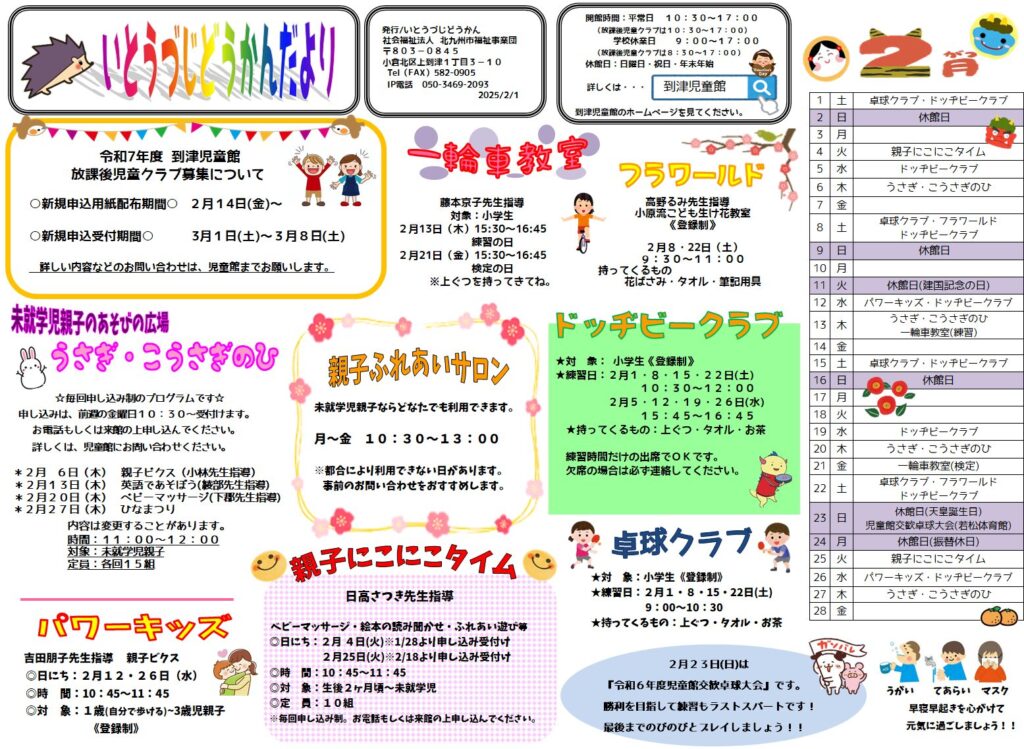 いとうづじどうかんだより
発行/いとうづじどうかん
社会福祉法人 北九州市福祉事業団
〒803-0845
小倉北区上到津1丁目3-10
Tel(FAX) 582-0905
IP電話 050-3469-2093
2025/2/1
開館時間:平常日 10:30~17:00
(放課後児童クラブは10:30~17:00)
学校休業日 9:00~17:00
(放課後児童クラブは8:30~17:00)
休館日:日曜日・祝日・年末年始
詳しくは・・・ 到津児童館
到津児童館のホームページを見てください。
令和7年度 到津児童館
放課後児童クラブ募集について
○新規申込用紙配布期間○ 2月14日(金)~
○新規申込受付期間○ 3月1日(土)~3月8日(土)
詳しい内容などのお問い合わせは、児童館までお願いします。
一輪車教室
藤本京子先生指導
対象:小学生
2月13日(木)15:30~16:45
練習の日
2月21日(金)15:30~16:45
検定の日
※上ぐつを持ってきてね。
フラワールド
高野るみ先生指導
小原流こども生け花教室
《登録制》
2月8・22日(土)
9:30~11:00
持ってくるもの
花ばさみ・タオル・筆記用具
未就学児親子のあそびの広場
うさぎ・こうさぎのひ
☆毎回申し込み制のプログラムです☆
申し込みは、前週の金曜日10:30~受付けます。
お電話もしくは来館の上申し込んでください。
詳しくは、児童館にお問い合わせください。
*2月 6日(木) 親子ビクス(小林先生指導)
*2月13日(木) 英語であそぼう(綾部先生指導)
*2月20日(木) ベビーマッサージ(下郡先生指導)
*2月27日(木) ひなまつり
内容は変更することがあります。
時間:11:00~12:00
対象:未就学児親子
定員:各回15組
親子ふれあいサロン
未就学児親子ならどなたでも利用できます。
月~金 10:30~13:00
※都合により利用できない日があります。
事前のお問い合わせをおすすめします。
ドッヂビークラブ
★対 象: 小学生《登録制》
★練習日:2月1・8・15・22日(土)
10:30~12:00
2月5・12・19・26日(水)
15:45~16:45
★持ってくるもの:上ぐつ・タオル・お茶
練習時間だけの出席でOKです。
欠席の場合は必ず連絡してください。
パワーキッズ
吉田朋子先生指導 親子ビクス
◎日にち:2月12・26日(水)
◎時 間:10:45~11:45
◎対 象:1歳(自分で歩ける)~3歳児親子
《登録制》
親子にこにこタイム
日高さつき先生指導
ベビーマッサージ・絵本の読み聞かせ・ふれあい遊び等
◎日にち:2月 4日(火)※1/28より申し込み受付け
2月25日(火)※2/18より申し込み受付け
◎時 間:10:45~11:45
◎対 象:生後2ヶ月頃~未就学児
◎定 員:10組
※毎回申し込み制。お電話もしくは来館の上申し込んでください。
卓球クラブ
★対 象:小学生《登録制》
★練習日:2月1・8・15・22日(土)
9:00~10:30
★持ってくるもの:上ぐつ・タオル・お茶
2月23日(日)は
『令和6年度児童館交歓卓球大会』です。
勝利を目指して練習もラストスパートです!
最後までのびのびとプレイしましょう!!
2がつ月
1 土 卓球クラブ・ドッヂビークラブ
2 日 休館日
3 月
4 火 親子にこにこタイム
5 水 ドッヂビークラブ
6 木 うさぎ・こうさぎのひ
7 金
8 土 卓球クラブ・フラワールド
ドッヂビークラブ
9 日 休館日
10 月
11 火 休館日(建国記念の日)
12 水 パワーキッズ・ドッヂビークラブ
13 木 うさぎ・こうさぎのひ
一輪車教室(練習)
14 金
15 土 卓球クラブ・ドッヂビークラブ
16 日 休館日
17 月
18 火
19 水 ドッヂビークラブ
20 木 うさぎ・こうさぎのひ
21 金 一輪車教室(検定)
22 土 卓球クラブ・フラワールド
ドッヂビークラブ
23 日 休館日(天皇誕生日)
児童館交歓卓球大会(若松体育館)
24 月 休館日(振替休日)
25 火 親子にこにこタイム
26 水 パワーキッズ・ドッヂビークラブ
27 木 うさぎ・こうさぎのひ
28 金
ガンバレ
うがい てあらい マスク
早寝早起きを心がけて
元気に過ごしましょう!!